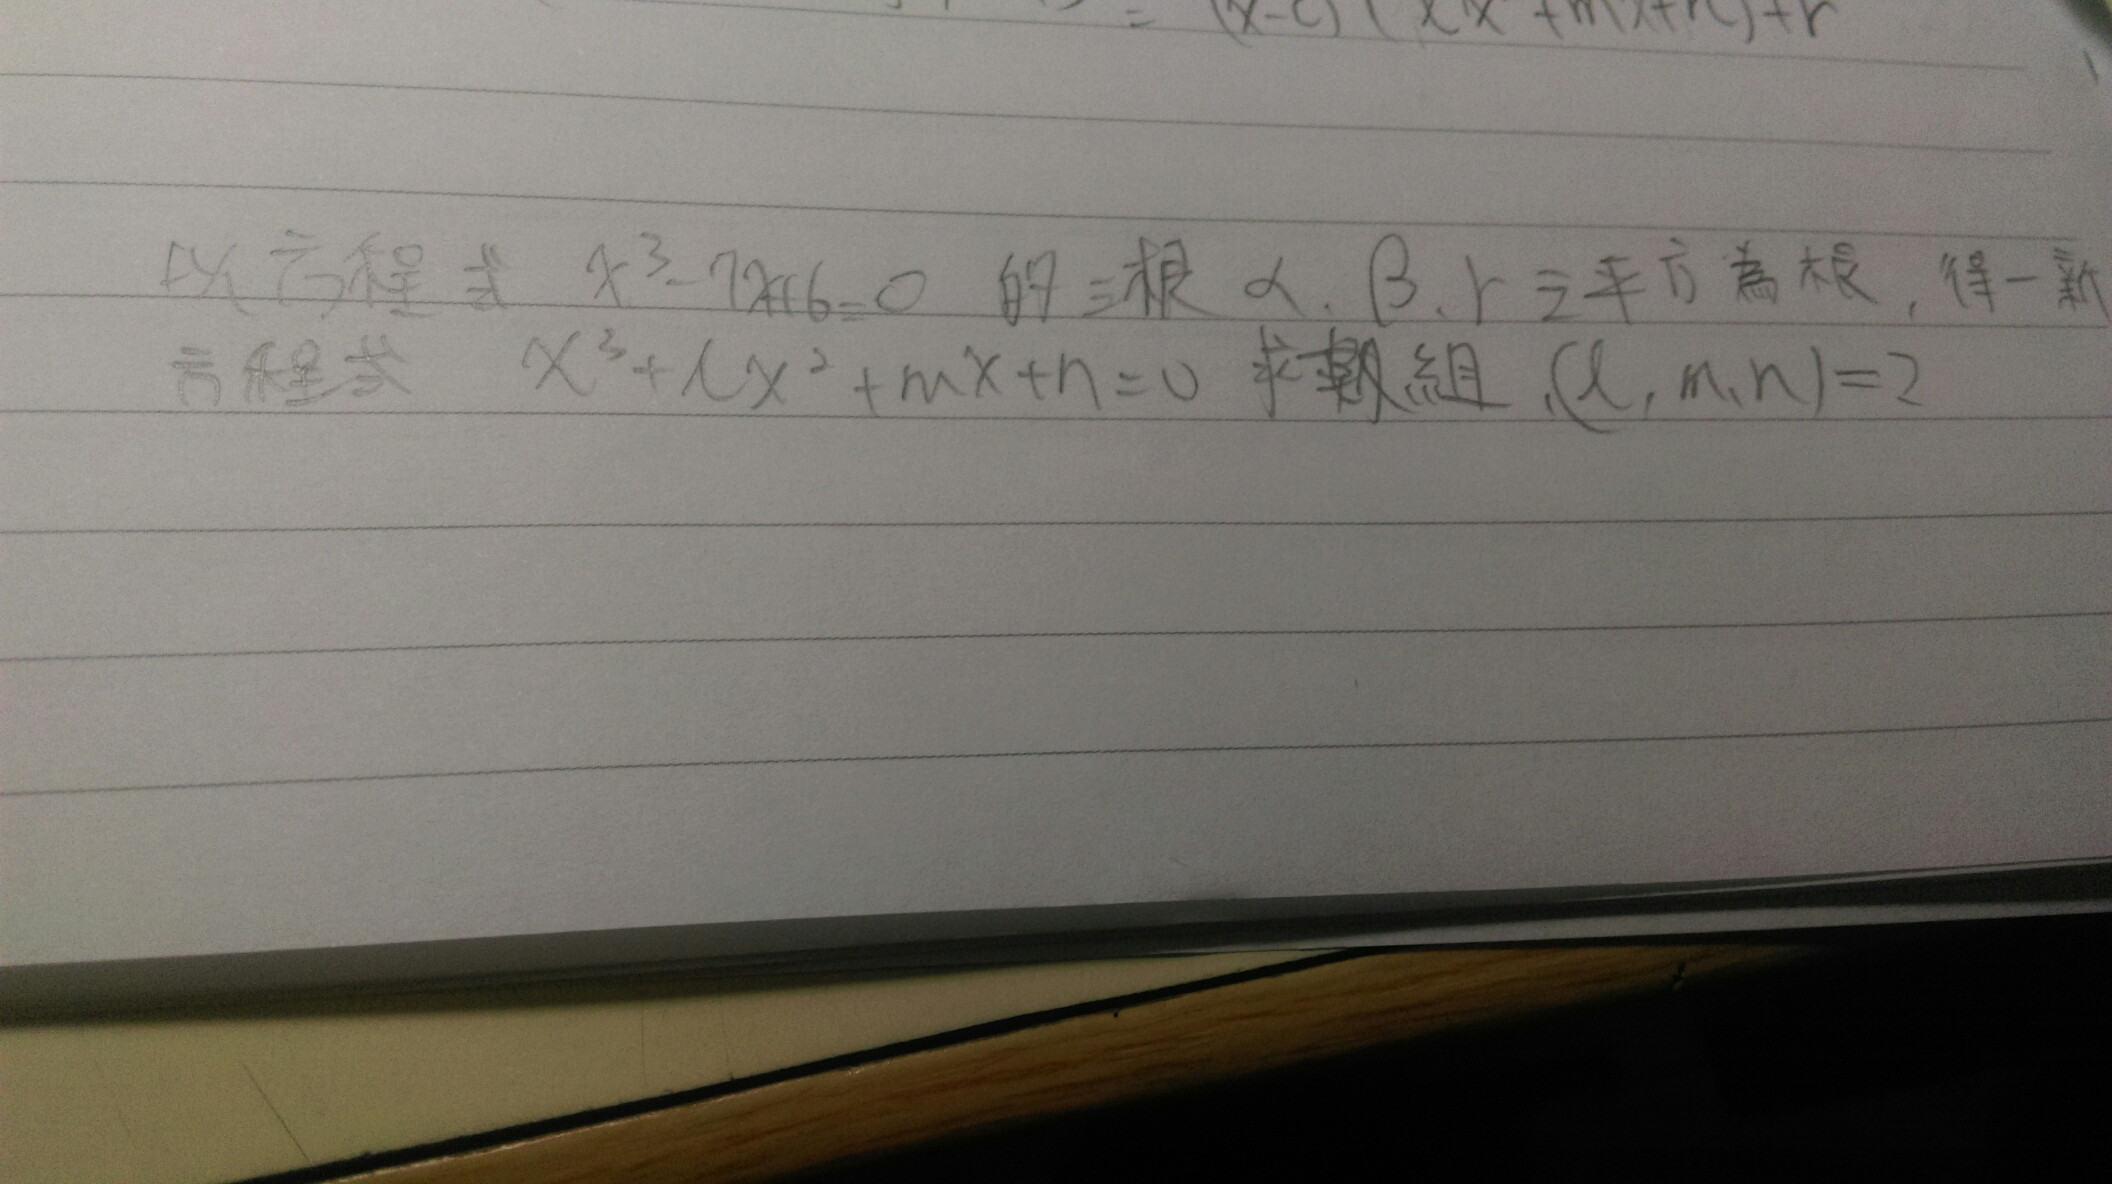 = (x-c)(lx²+mx+n)+r
以方程式 x³-7x+6=0 的三根 α、β、r之平方為根，得一新
方程式 x³+lx²+mx+n=0 求數組 (l,m,n)=?